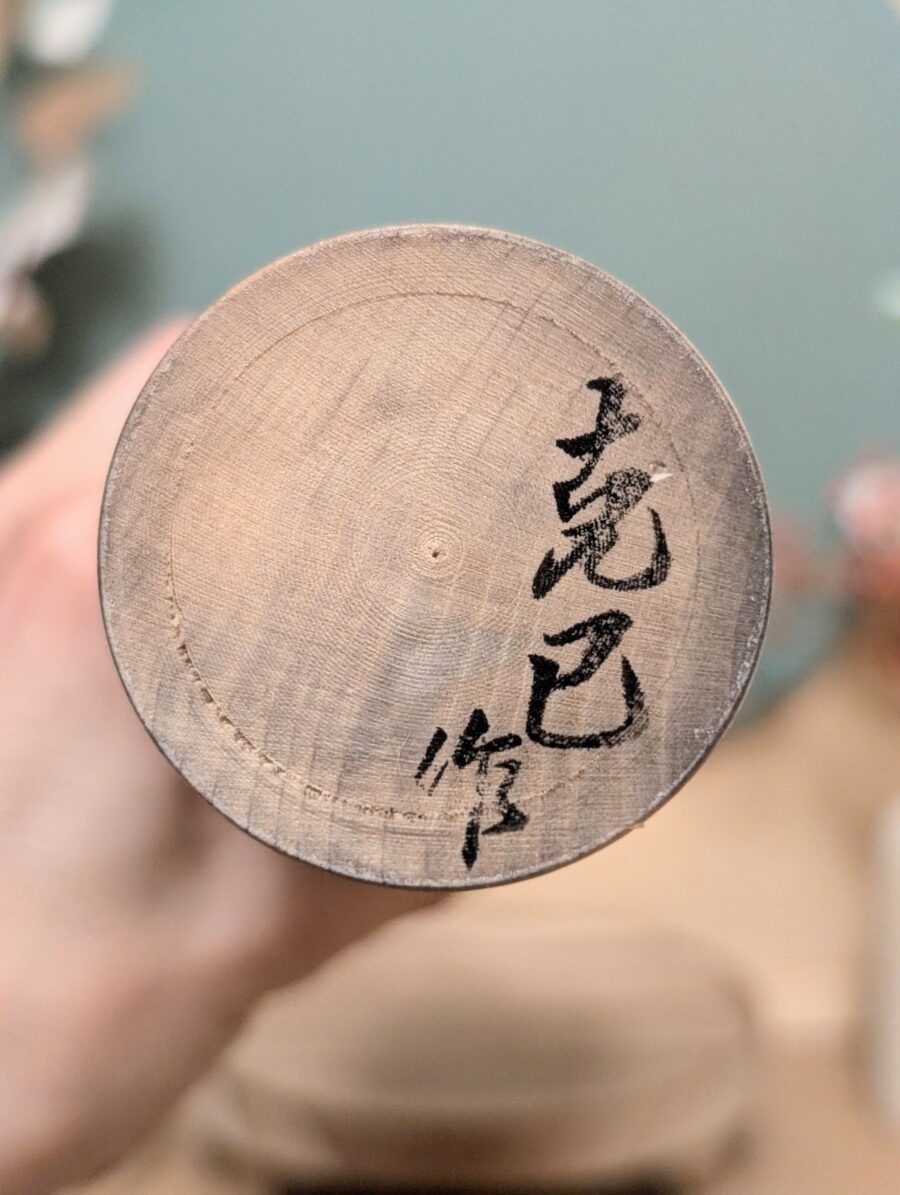 克巳
作